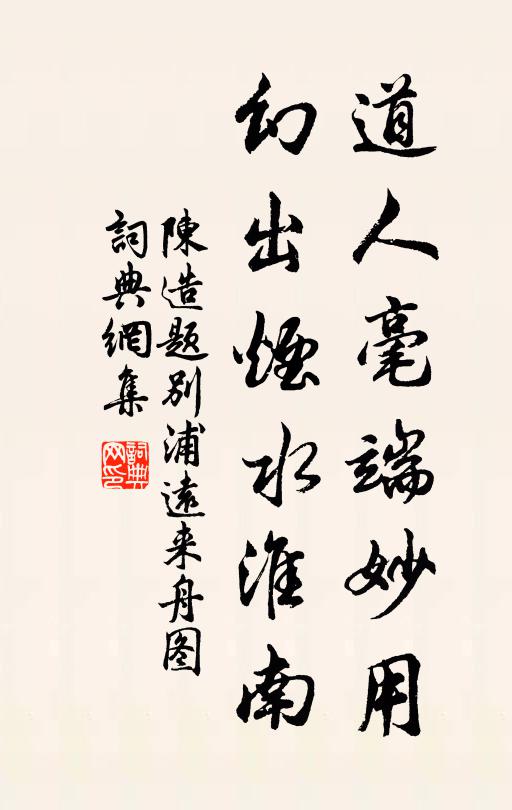 道人毫端妙用
幻出煙水淮南
陳造题別浦遠来舟图
詞典網集
詞典
网印